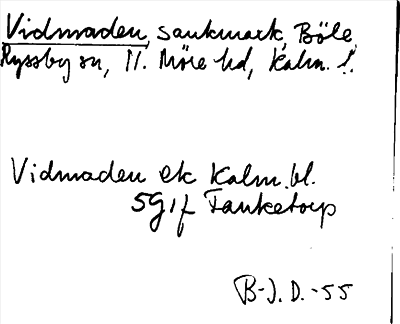 Vidmaden, sankmark, Böle,
Ryssby sn, N. Möre hd, Kalm. l.
Vidmaden ek Kalm. bl.
5G1f Tanketorp
B-J. D. -55